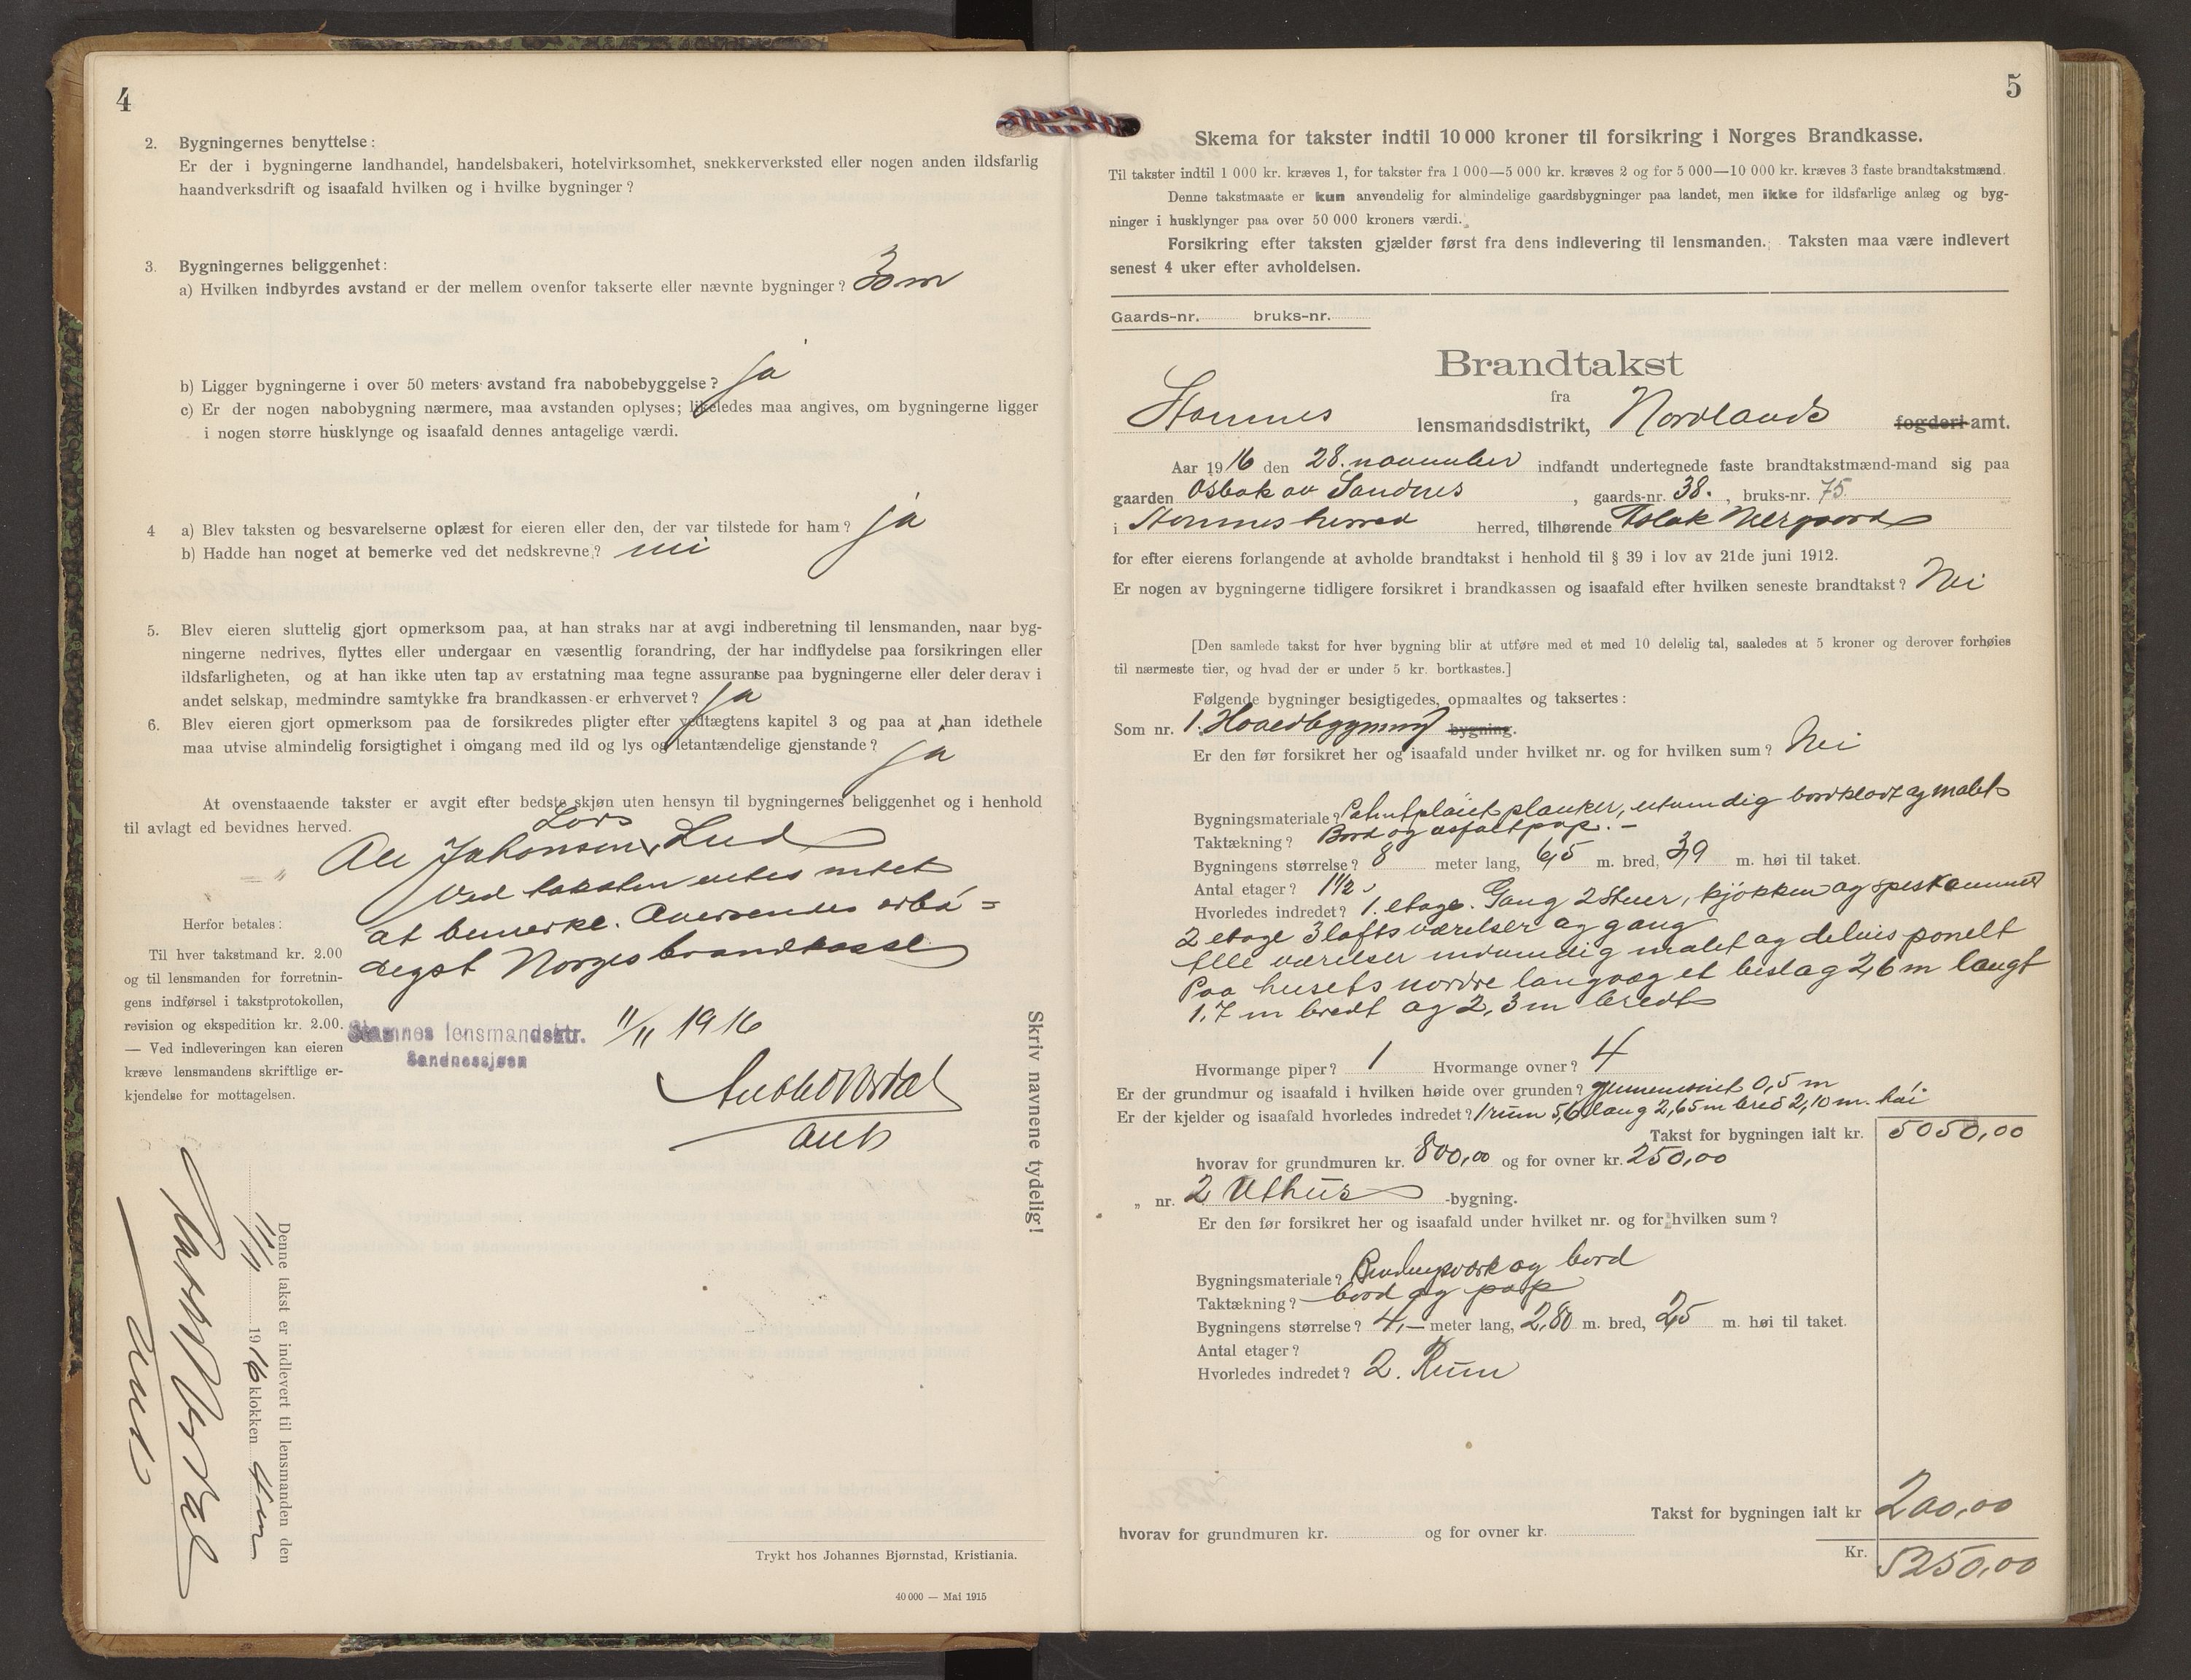 4
2. Bygningernes benyttelse:
Er der i bygningerne landhandel, handelsbakeri, hotelvirksomhet, snekkerverksted eller nogen anden ildsfarlig
haandverksdrift og isaafald hvilken og i hvilke bygninger?
3. Bygningernes beliggenhet:
a) Hvilken indbyrdes avstand er der mellem ovenfor takserte eller nævnte bygninger? 30 m
b) Ligger bygningerne i over 50 meters avstand fra nabobebyggelse? ja
c) Er der nogen nabobygning nærmere, maa avstanden oplyses; likeledes maa angives, om bygningerne ligger
i nogen større husklynge og isaafald dennes antagelige værdi.
4 a) Blev taksten og besvarelserne oplæst for eieren eller den, der var tilstede for ham? ja
b) Hadde han noget at bemerke ved det nedskrevne? nei
5. Blev eieren sluttelig gjort opmerksom paa, at han straks har at avgi indberetning til lensmanden, naar byg-
ningerne nedrives, flyttes eller undergaar en væsentlig forandring, der har indflydelse paa forsikringen eller
ildsfarligheten, og at han ikke uten tap av erstatning maa tegne assuranse paa bygningerne eller deler derav i
andet selskap, medmindre samtykke fra brandkassen er erhvervet? ja
6. Blev eieren gjort opmerksom paa de forsikredes pligter efter vedtægtens kapitel 3 og paa at han idethele
maa utvise almindelig forsigtighet i omgang med ild og lys og letantændelige gjenstande? ja
At ovenstaaende takster er avgit efter bedste skjøn uten hensyn til bygningernes beliggenhet og i henhold
til avlagt ed bevidnes herved.
Lars
Ole Johansen, Lud
Ved taksten intet
at bemerke. Oversendes ærbø=
degst Norges brandkasse
Herfor betales:
Til hver takstmand kr. 2.00
og til lensmanden for forretnin-
gens indførsel i takstprotokollen,
revision og ekspedition kr. 2.00.
— Ved indleveringen kan eieren
kræve lensmandens skriftlige er-
kjendelse for mottagelsen.
Stamnes lensmandsktr.
Sandnessjøen
11/11 1916
Skriv navnene tydelig!
Denne takst er indlevert til lensmanden den
11/11 1916 klokken
Trykt hos Johannes Bjørnstad, Kristiania.
40 000 — Mai 1915
5
Skema for takster indtil 10 000 kroner til forsikring i Norges Brandkasse.
Til takster indtil 1 000 kr. kræves 1, for takster fra 1 000—5 000 kr. kræves 2 og for 5 000—10 000 kr. kræves 3 faste brandtakstmænd.
Denne takstmaate er kun anvendelig for almindelige gaardsbygninger paa landet, men ikke for ildsfarlige anlæg og byg-
ninger i husklynger paa over 50 000 kroners værdi.
Forsikring efter taksten gjælder først fra dens indlevering til lensmanden. Taksten maa være indlevert
senest 4 uker efter avholdelsen.
Gaards-nr. bruks-nr.
Brandtakst
fra
Stamnes lensmandsdistrikt, Nordlands fogderi amt.
Aar 1916 den 28. november indfandt undertegnede faste brandtakstmænd-mand sig paa
gaarden Osbak av Sandnes, gaards-nr. 38., bruks-nr. 75
i Stamnes herred herred, tilhørende Aslak Nergaard
for efter eierens forlangende at avholde brandtakst i henhold til § 39 i lov av 21de juni 1912.
Er nogen av bygningerne tidligere forsikret i brandkassen og isaafald efter hvilken seneste brandtakst? Nei
[Den samlede takst for hver bygning blir at utføre med et med 10 delelig tal, saaledes at 5 kroner og derover forhøies
til nærmeste tier, og hvad der er under 5 kr. bortkastes.]
Følgende bygninger besigtigedes, opmaaltes og taksertes:
Som nr. 1. Hovedbygning bygning.
Er den før forsikret her og isaafald under hvilket nr. og for hvilken sum? Nei
Bygningsmateriale? Patentpløiet planker, utvendig bordklædt og malet
Taktækning? Bord og asfaltpap. –
Bygningens størrelse? 8 meter lang, 6,5 m. bred, 3,9 m. høi til taket.
Antal etager? 1 1/2
Hvorledes indredet? 1. etage. Gang 2 Stuer, kjøkken og spiskammer
2 etage 3 loftsværelser og gang
Alle værelser indvendig malet og delvis panelt
Paa husets nordre langvæg et bislag 2,6 m langt
1,7 m bredt og 2,3 m bredt
Hvormange piper? 1 Hvormange ovner? 4
Er der grundmur og isaafald i hvilken høide over grunden? 0,5 m
Er der kjelder og isaafald hvorledes indredet? 1 rum 5,6 lang 2,65 m bred 2,10 m. høi
Takst for bygningen ialt kr. 5050,00
hvorav for grundmuren kr. 800,00 og for ovner kr. 250,00
„ nr. 2 Uthus -bygning.
Er den før forsikret her og isaafald under hvilket nr. og for hvilken sum?
Bygningsmateriale? Bindingsværk og bord
Taktækning? bord og pap
Bygningens størrelse? 4,— meter lang, 2,80 m. bred, 2,5 m. høi til taket.
Antal etager?
Hvorledes indredet? 2. Rum
Takst for bygningen ialt kr 200,00
hvorav for grundmuren kr. og for ovner kr.
Kr. 5250,00